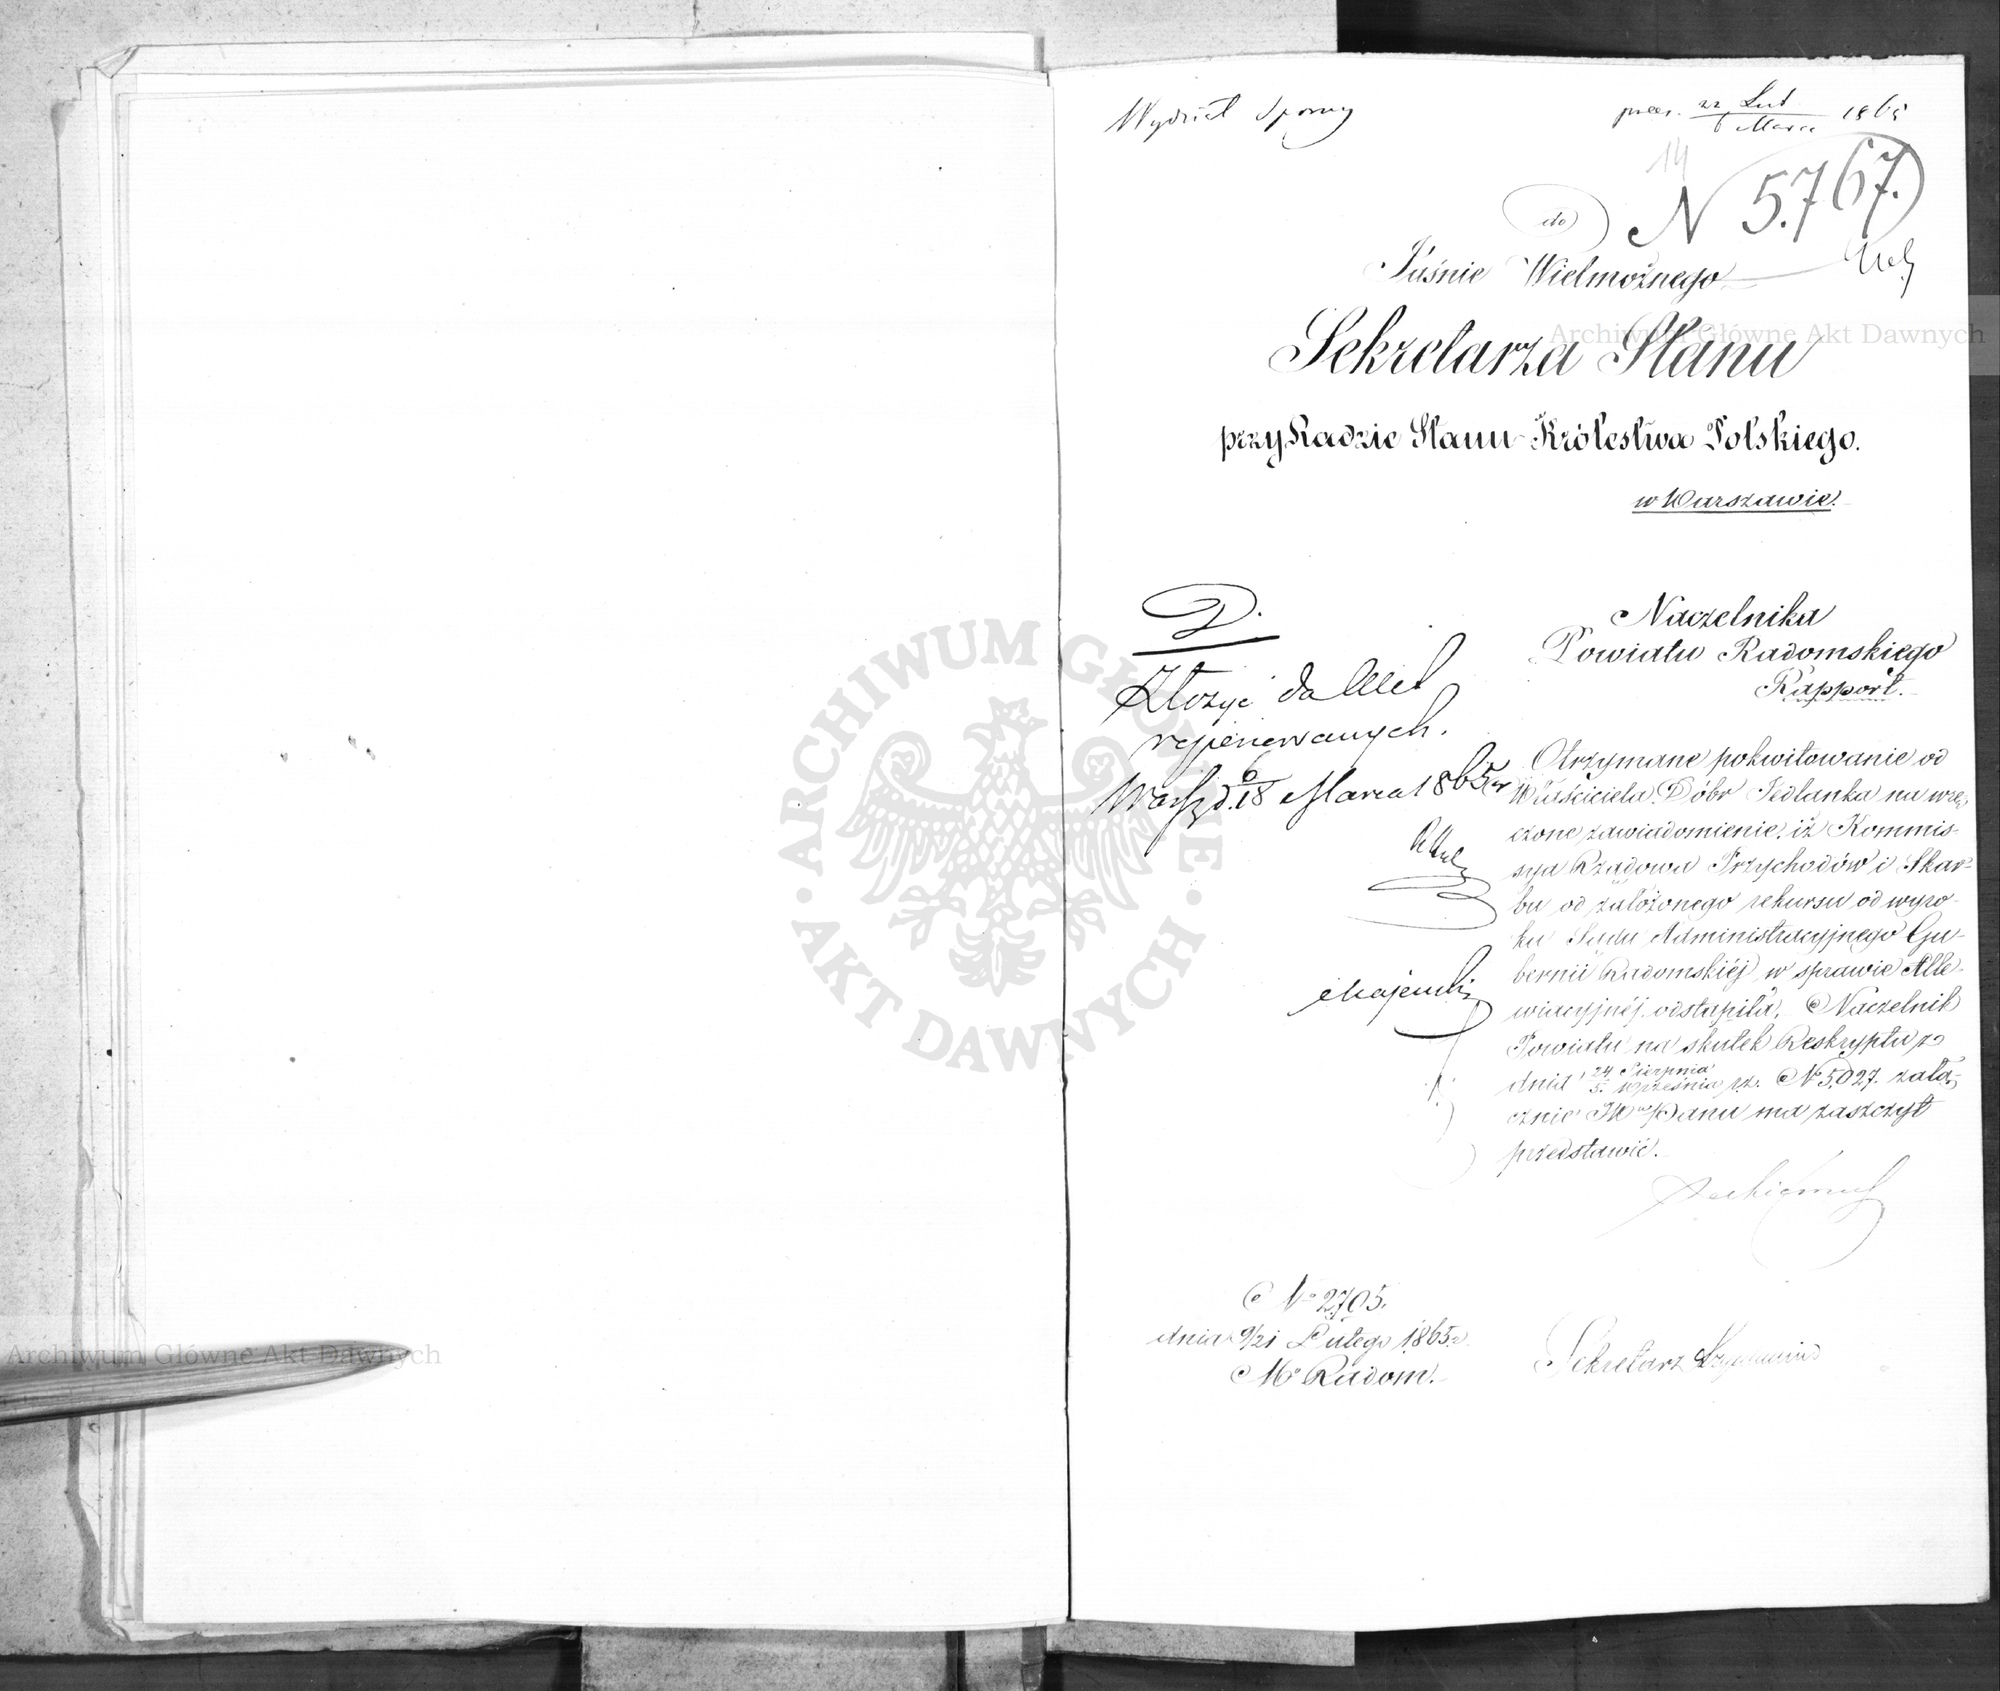 Wydział Sporny
prez. 22 Lut / 6 Marca 1865
14
N 5.767.
do
Jaśnie Wielmożnego
Sekretarza Stanu
przy Radzie Stanu Królestwa Polskiego.
w Warszawie.
D.
Złożyć do Akt
repienowanych.
Warsz. d. 6/18 Marca 1865 r
Majewski
Naczelnika
Powiatu Radomskiego
Rapport.
Otrzymane pokwitowanie od
Właściciela Dóbr Jedlanka na wrę-
czone zawiadomienie, iż Kommis-
sya Rządowa Przychodów i Skar-
bu od założonego rekursu od wyro-
ku Sądu Administracyjnego Gu-
bernii Radomskiéj w sprawie Alle-
wiacyjnéj odstąpiła, Naczelnik
Powiatu na skutek Reskryptu z
dnia 24 Sierpnia / 5 Września r.z. No 5,027. załą-
cznie JWmu Panu ma zaszczyt
przedstawić.
No 2705.
dnia 9/21 Lutego 1865 r.
Mo Radom.
Sekretarz
Archiwum Główne Akt Dawnych
ARCHIWUM GŁÓWNE AKT DAWNYCH
Archiwum Główne Akt Dawnych